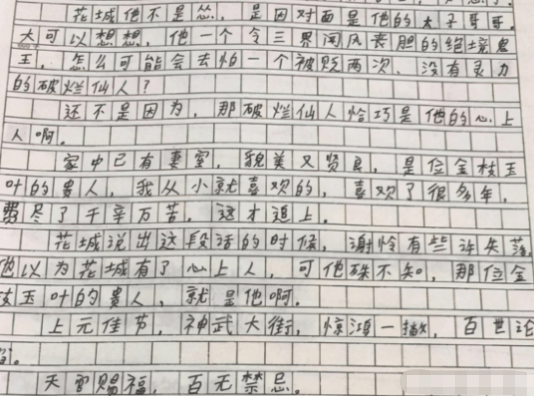 花城他不是怂,是因对面是他的太子哥哥
大可以想想,他一个令三界闻风丧胆的绝境鬼
王,怎么可能会去怕一个被贬两次,没有灵力
的破烂仙人?
还不是因为,那破烂仙人恰巧是他的心上
人啊。
家中已有妻室,貌美又贤良,是位金枝玉
叶的贵人,我从小就喜欢的,喜欢了很多年,
费尽了千辛万苦,这才追上。
花城说出这段话的时候,谢怜有些许失落,
他以为花城有了心上人,可他殊不知,那位金
枝玉叶的贵人,就是他啊。
上元佳节,神武大街,惊鸿一撇,百世沦
陷。
天官赐福,百无禁忌。